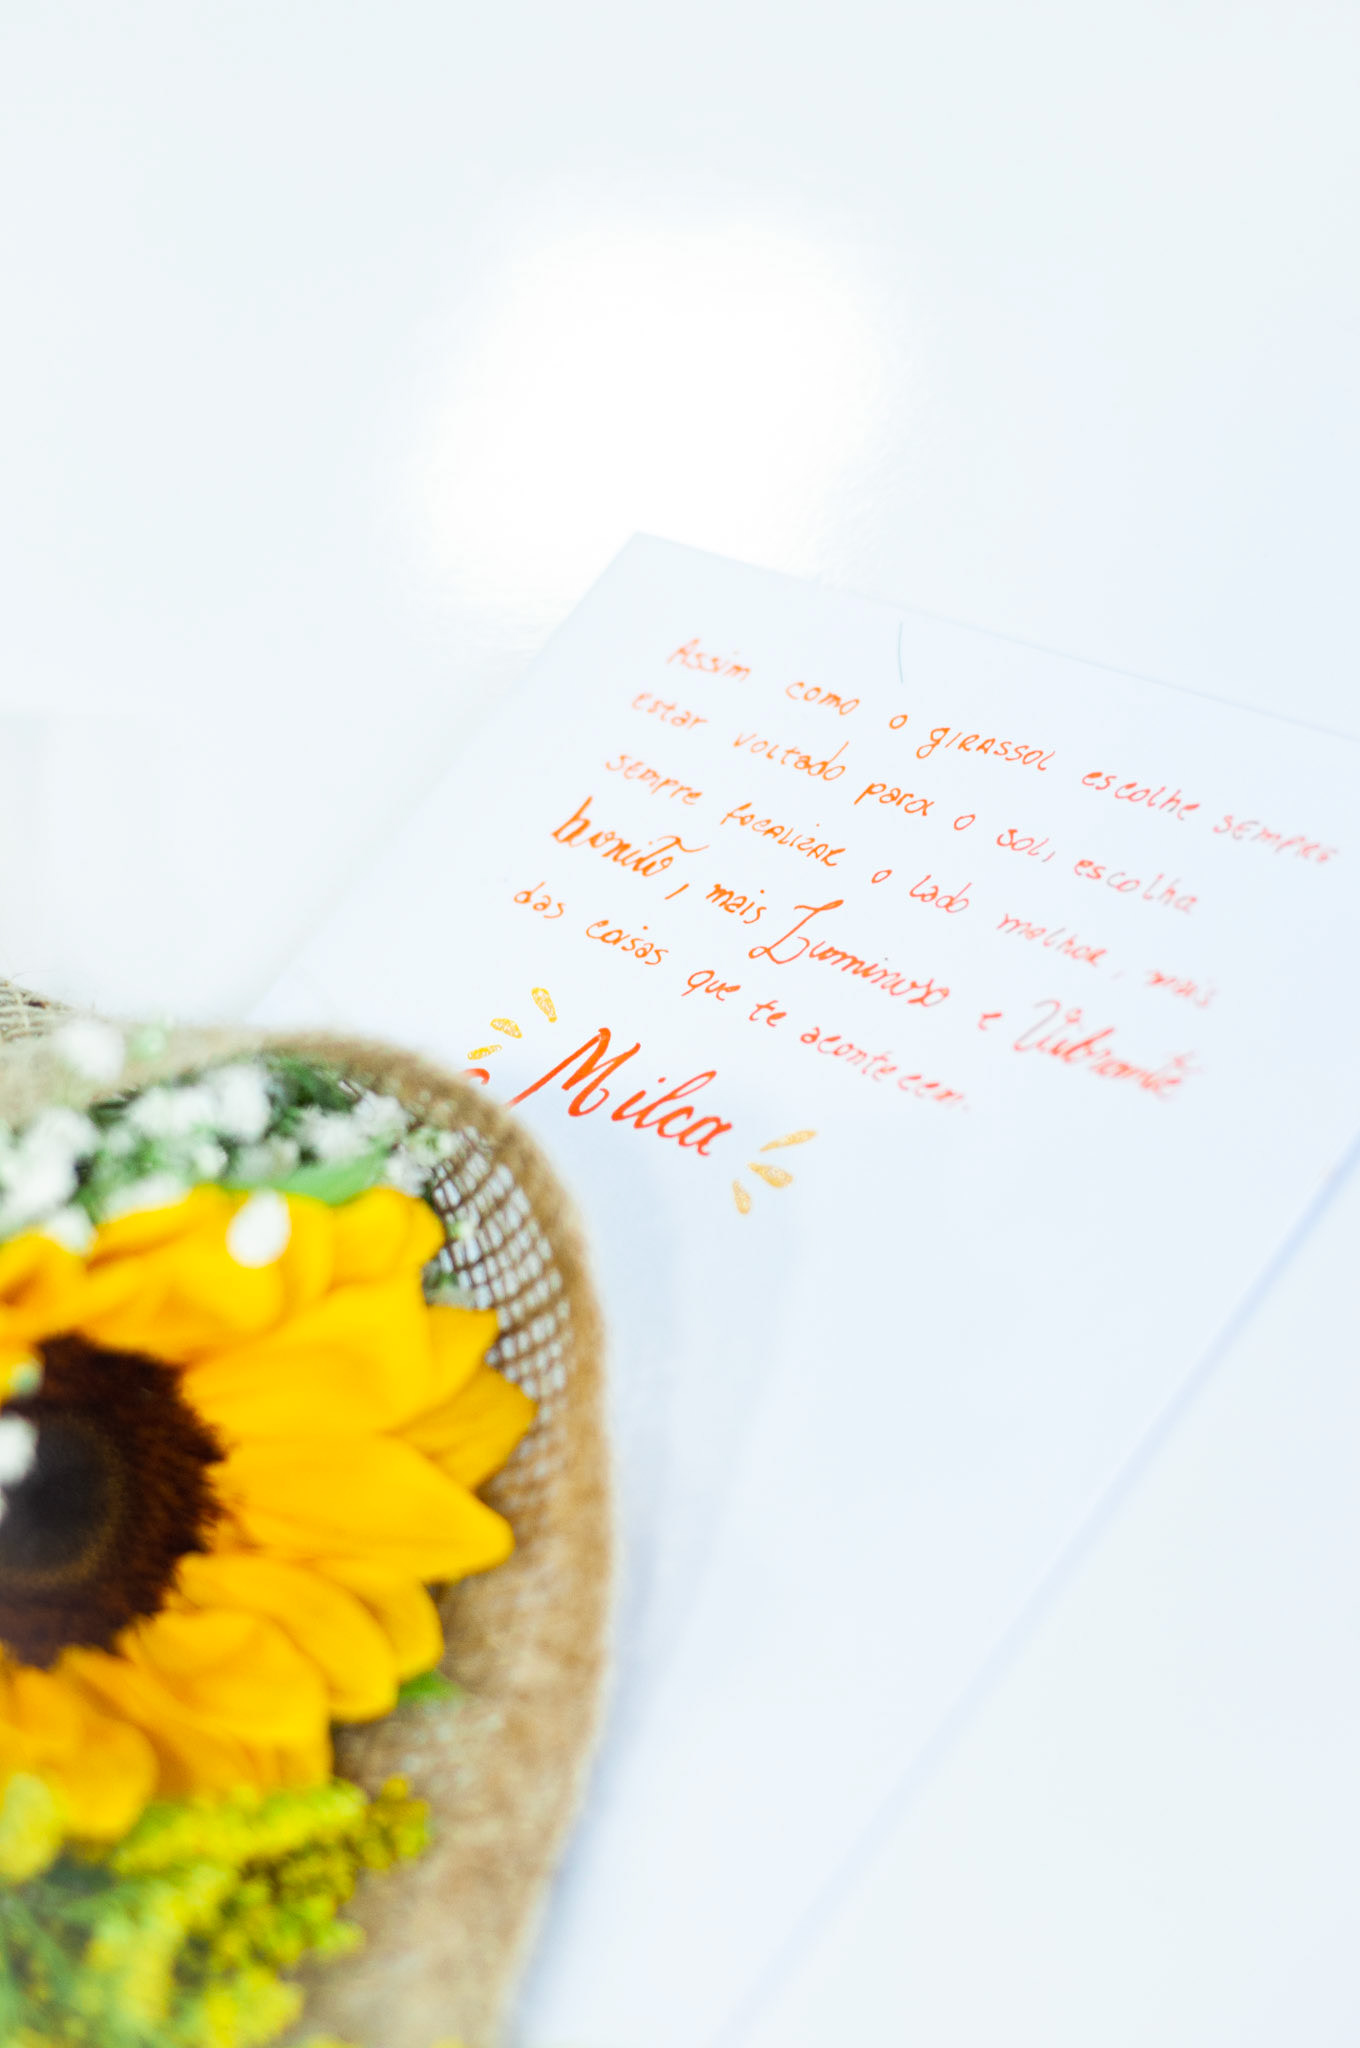 Assim como o girassol escolhe sempre
estar voltado para o sol, escolha
sempre focalizar o lado melhor, mais
bonito, mais Luminoso e Vibrante
das coisas que te acontecem.
Milca